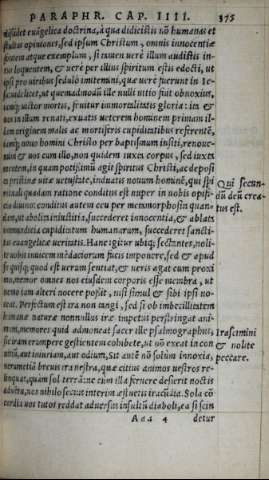 PARAPHR. CAP. IIII. 375
dissidet euãgelica doctrina, à qua didicistis nõ humanas et
stultas opiniones, sed ipsum Christum, omnis innocentiæ
fontem atque exemplum, si tamen uerè illum audistis in-
tus loquentem, & uerè per illius spiritum estis edocti, ut
ipsi pro uiribus sedulò imitemini, quæ uerè fuerunt in Ie-
su: uidelicet, ut quemadmodũ ille nulli uitio fuit obnoxius,
iamq; uictor mortis, fruitur immortalitatis gloria: ita &
uos in illum renati, exuatis ueterem hominem primum il-
lum originem malis ac mortiferis cupiditatibus referentẽ,
iamq; nouo homini Christo per baptismum insiti, renoue-
mini & uos cum illo, non quidem iuxta corpus, sed iuxta
mentem, in quam potissimũ agit spiritus Christi, ac deposi
ta pristinæ uitæ uetustate, induatis nouum hominẽ, qui spi
rituali quadam ratione conditus est nuper in nobis opifi-
cio diuino: conditus autem ceu per metamorphosin quan-
dam, ut abolita iniustitia, succederet innocentia, & ablata
immundicia cupiditatum humanarum, succederet sancti-
tas euangelicæ ueritatis. Hanc igitur ubiq; sectantes, noli-
te uobis inuicem mẽdaciorum fucis imponere, sed & apud
se quisq; quod est uerum sentiat, & ueris agat cum proxi
mo, memor omnes nos eiusdem corporis esse membra, ut
nemo iam alteri nocere possit, nisi simul & sibi ipsi no-
ceat. Perfectum est ira non tangi, sed si ob imbecillitatem
humanæ naturæ nonnullus iræ impetus perstringat ani-
mum, memores quid admoneat sacer ille psalmographus,
sic iram erumpere gestientem cohibete, ut nõ exeat in con
uitiũ, aut iniuriam, aut odium. Sit autẽ nõ solùm innoxia,
uerumetiã breuis ira uestra, quæ citius animos uestros re-
linquat, quàm sol terrã: ne cum illa feruere desierit noctis
aduentu, uos nihilo secius interim æstuetis iracũdia. Sola cõ
cordia uos tutos reddat aduersus insultũ diaboli, ea si scin
Aaa 4 detur
Qui secun-
dũ deũ crea
tus est.
Irascimini
& nolite
peccare.